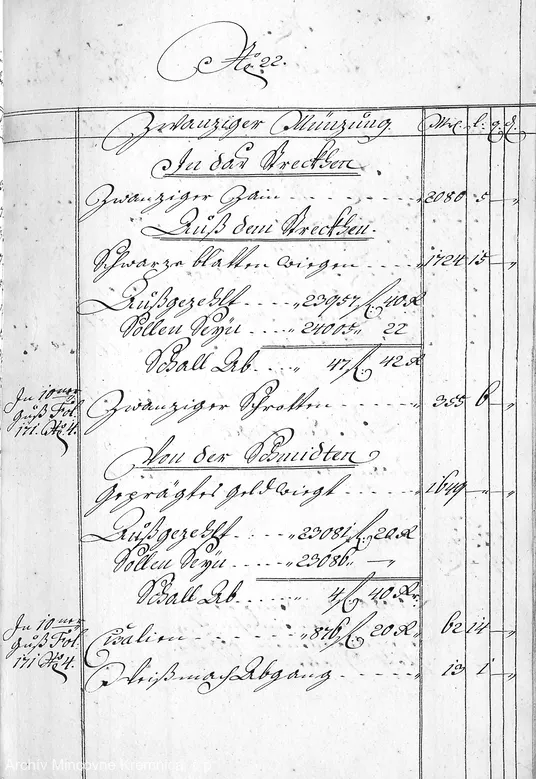 No. 22.
Zwanziger Münzung. Mrk. l. q. d.
In das Streckhen
Zwanziger Zain 2080 5 — „
Auß dem Streckhen.
Schwarze blatten wiegen 1724 15 — „
Außgezehlt „ 23957 f. 40 K
Sollen Seyn „ 24005 „ 22
Schall Ab „ 47 f. 42 K
In 10ner Guß Fol. 171. No. 4.
Zwanziger Schrotten 355 6 — „
Von der Schmidten
Geprägtes Geld wiegt 1649 — „ — „
Außgezehlt „ 23081 f. 20 K
Sollen Seyn „ 23086 „ —
Schall Ab „ 4 f. 40 Kr.
In 10ner Guß Fol. 171 No. 4.
Cisalien „ 876 f. 20 K 62 14 — „
Weißmach Abgang 13 1 — „
Archiv Mincovne Kremnica